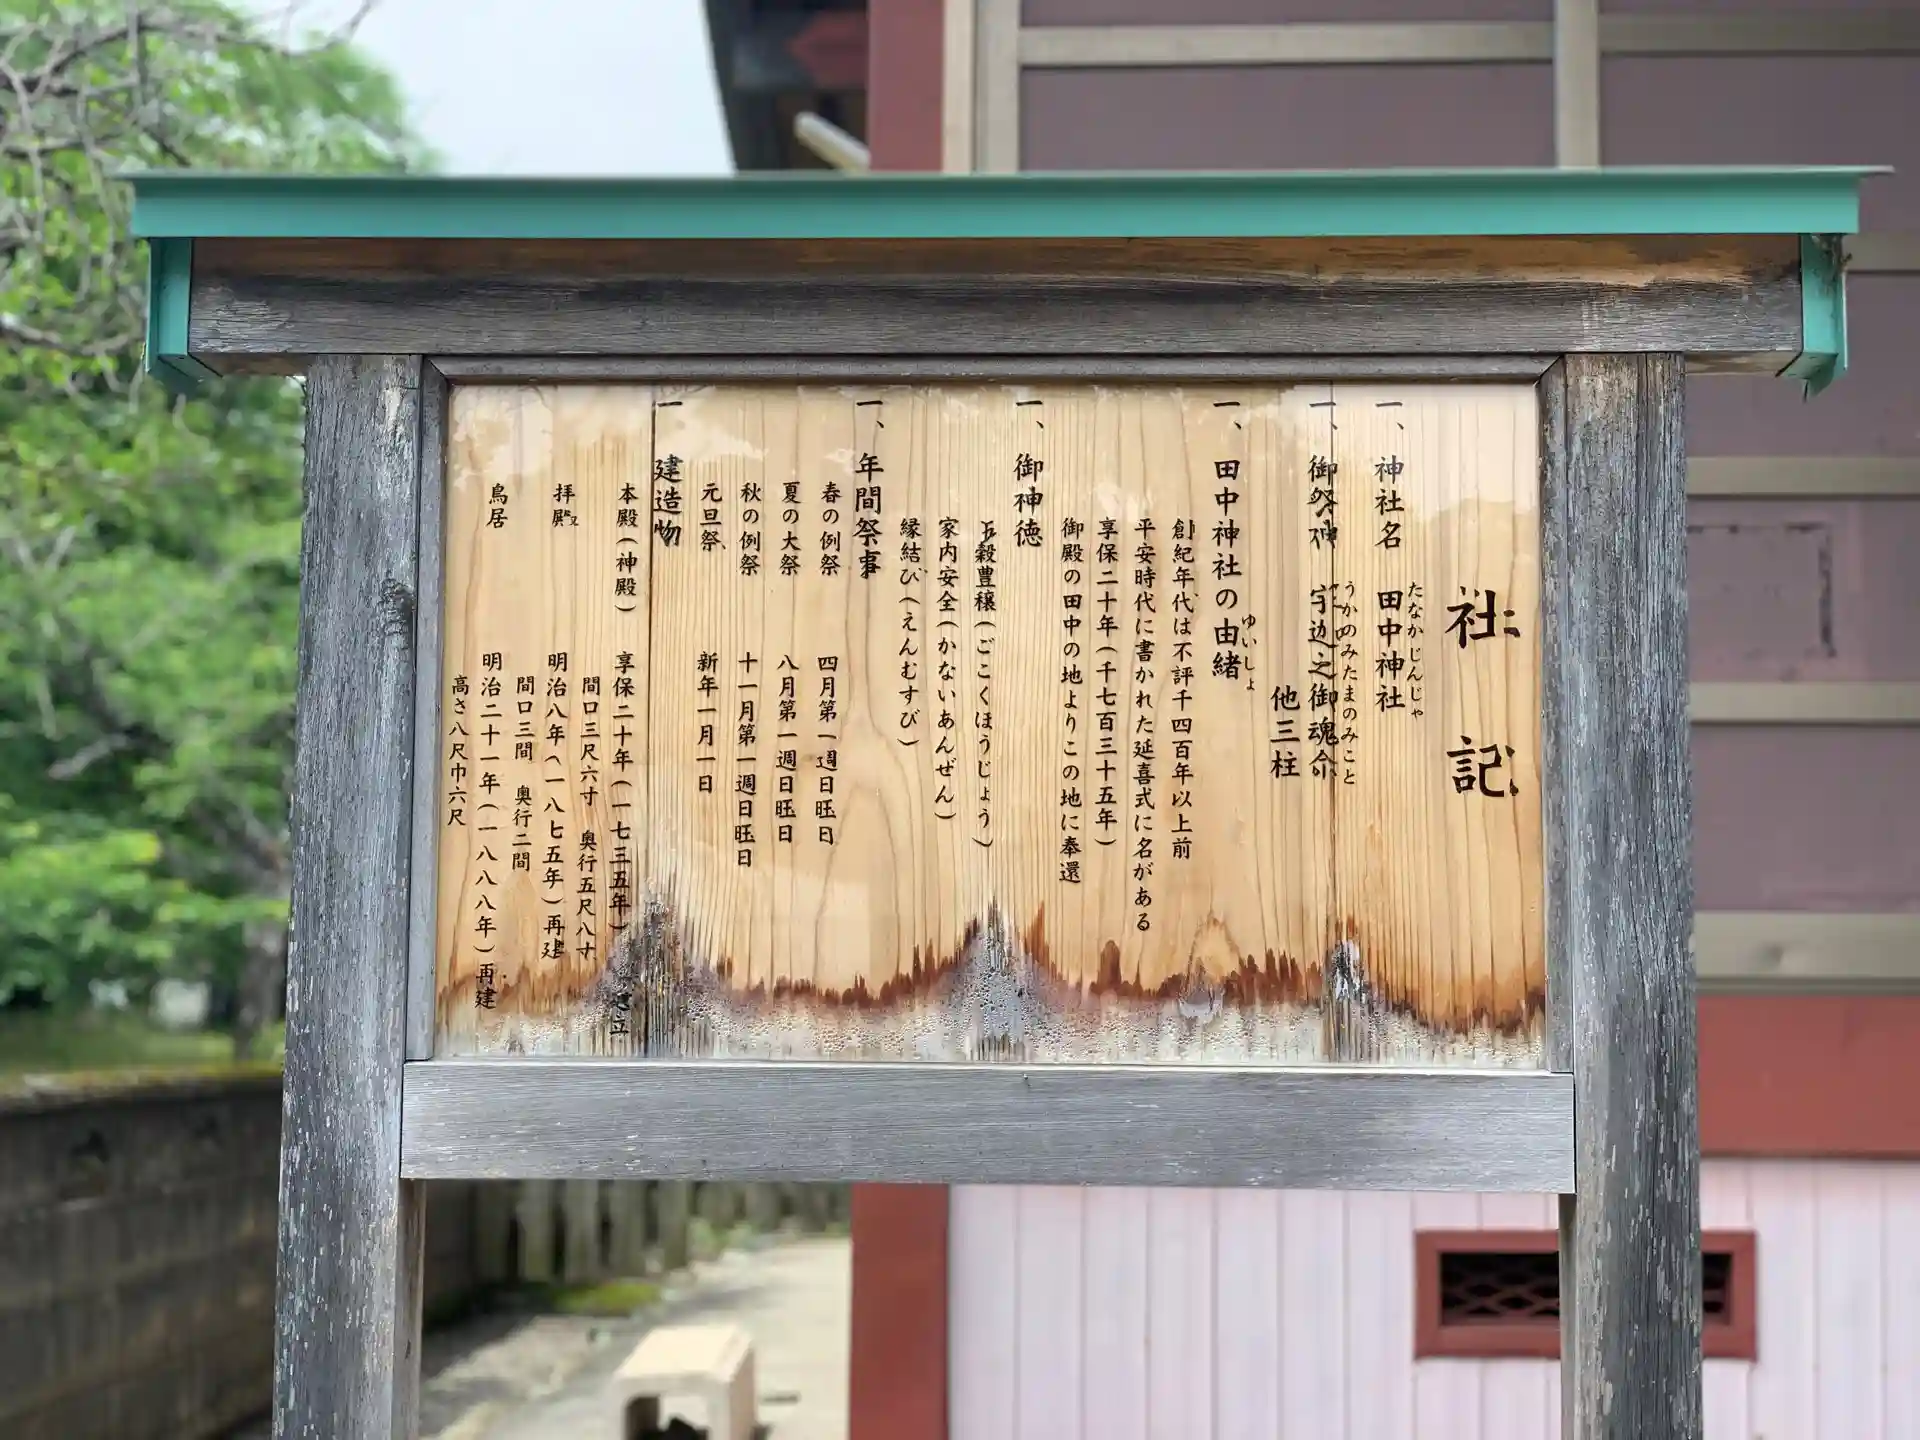 社記
一、神社名 田中神社
たなかじんじゃ
一、御祭神 宇迦之御魂命
うかのみたまのみこと
他三柱
一、田中神社の由緒
ゆいしょ
創紀年代は不評千四百年以上前
平安時代に書かれた延喜式に名がある
享保二十年(千七百三十五年)
御殿の田中の地よりこの地に奉還
一、御神徳
五穀豊穣(ごこくほうじょう)
家内安全(かないあんぜん)
縁結び(えんむすび)
一、年間祭事
春の例祭 四月第一週日曜日
夏の大祭 八月第一週日曜日
秋の例祭 十一月第一週日曜日
元旦祭 新年一月一日
一 建造物
本殿(神殿) 享保二十年(一七三五年) 建立
間口三尺六寸 奥行五尺八寸
拝殿 明治八年(一八七五年)再建
間口三間 奥行二間
鳥居 明治二十一年(一八八八年)再建
高さ八尺巾六尺